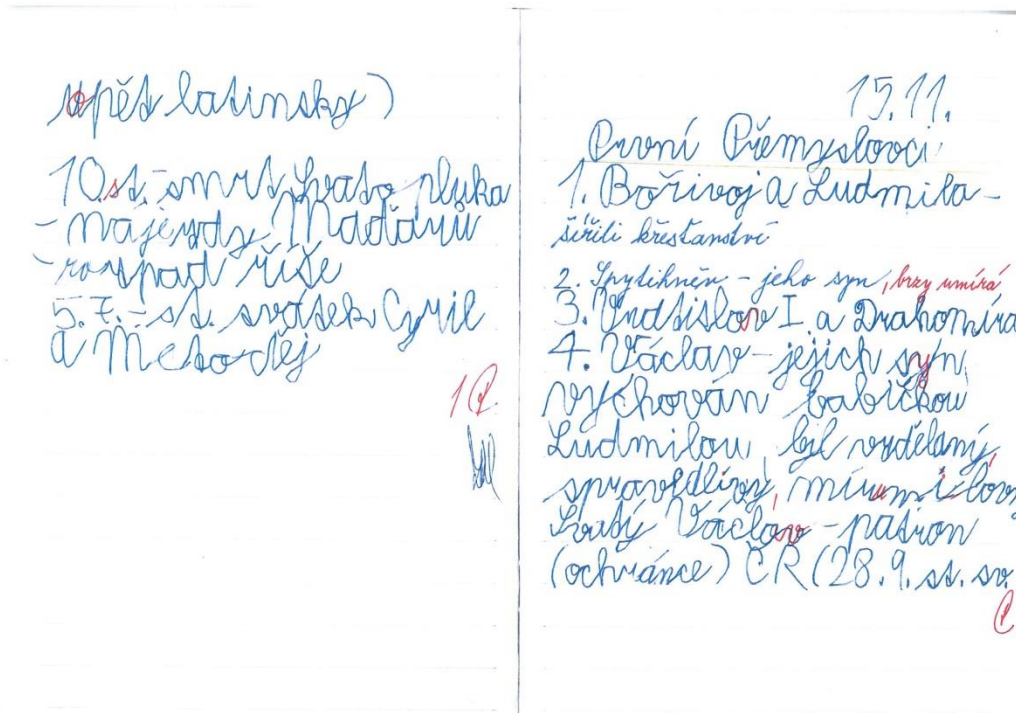 opět latinsky)
10. st. - smrt Svato pluka
- nájezdy Maďarů
- rozpad říše
5. 7. - st. svátek Cyril
a Metoděj
1
15. 11.
První Přemyslovci
1. Bořivoj a Ludmila -
šířili křesťanství
2. Spytihněv - jeho syn, brzy umírá
3. Vratislav I. a Drahomíra
4. Václav - jejich syn,
vychován babičkou
Ludmilou, byl vzdělaný,
spravedlivý, mírumilovný
Svatý Václav - patron
(ochránce) ČR (28. 9. st. sv.